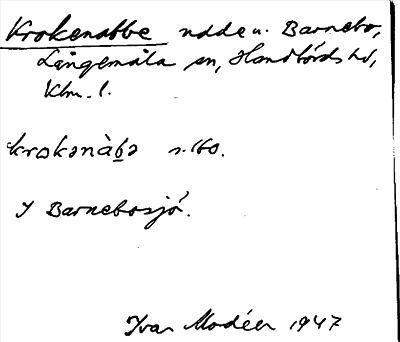 Krokenabbe udde u. Barnebo,
Långemåla sn, Handbörds hd,
Klm. l.
krokənàb̲ə s. 160.
I Barnebosjö.
Ivar Modéer 1947